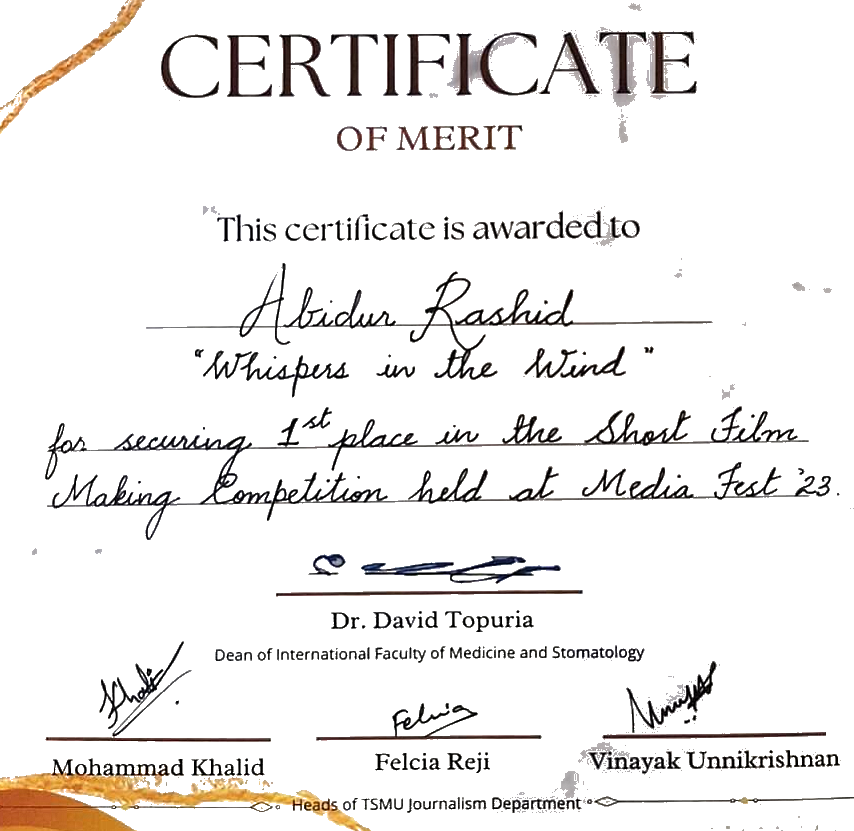 CERTIFICATE
OF MERIT
This certificate is awarded to
Abidur Rashid
"Whispers in the Wind"
for securing 1st place in the Short Film
Making Competition held at Media Fest '23.
Dr. David Topuria
Dean of International Faculty of Medicine and Stomatology
Khalid
Felcia
Mohammad Khalid
Felcia Reji
Vinayak Unnikrishnan
Heads of TSMU Journalism Department